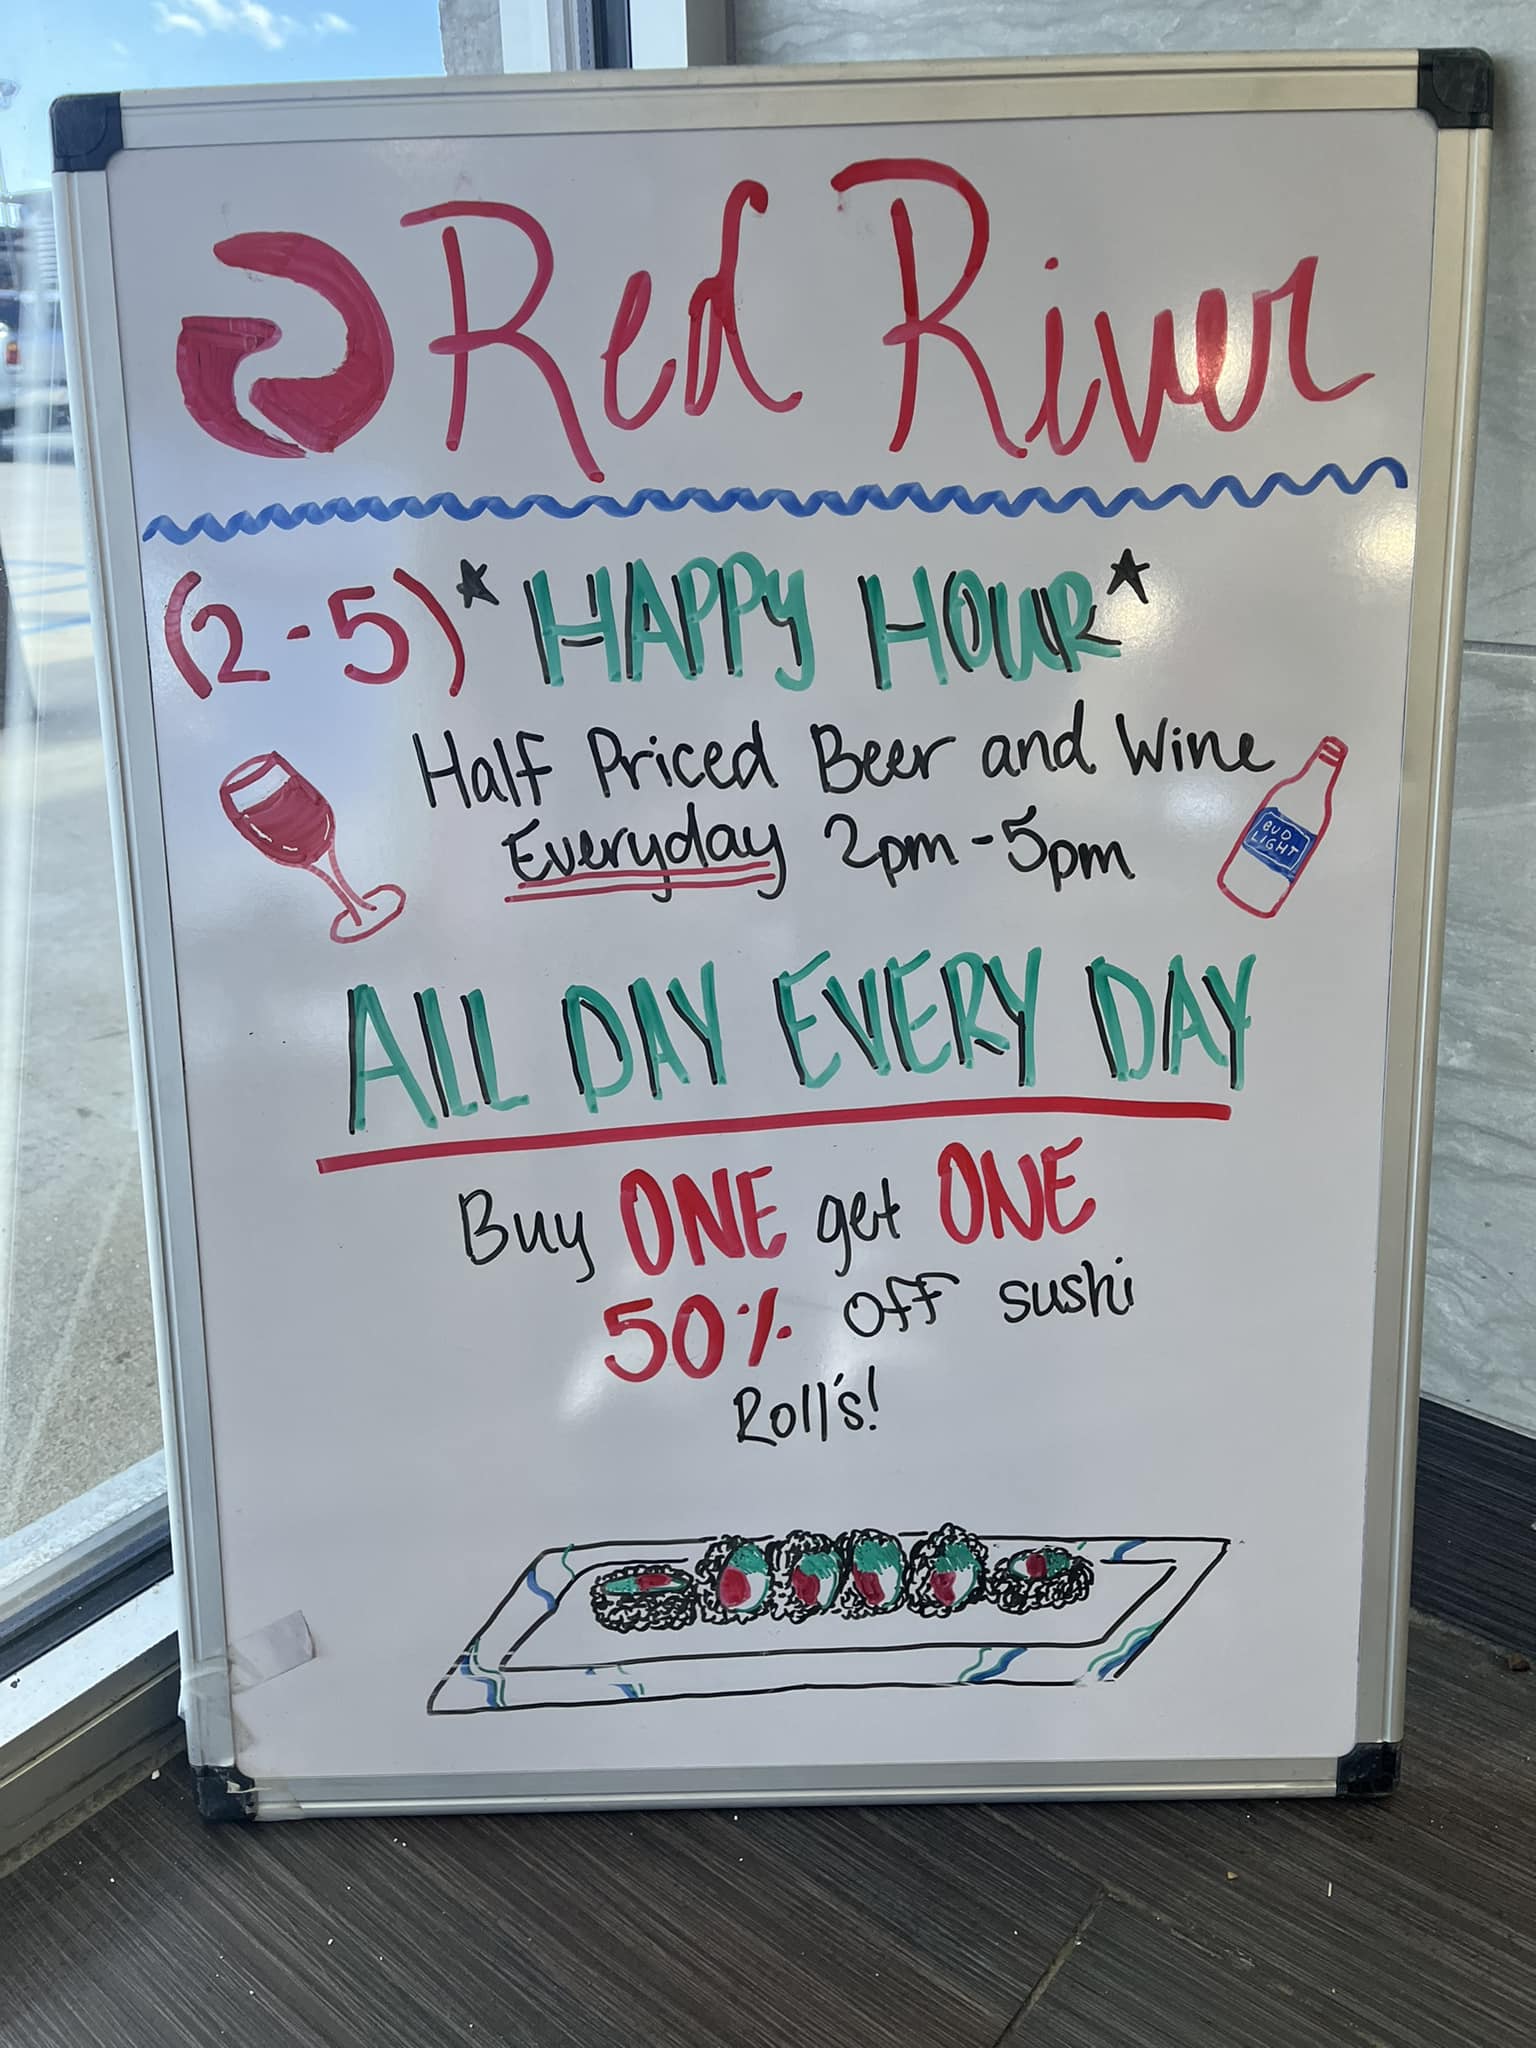 Red River
(2-5) *HAPPY HOUR*
Half Priced Beer and Wine
Everyday 2pm-5pm
BUD
LIGHT
ALL DAY EVERY DAY
Buy ONE get ONE
50% off sushi
Roll's!